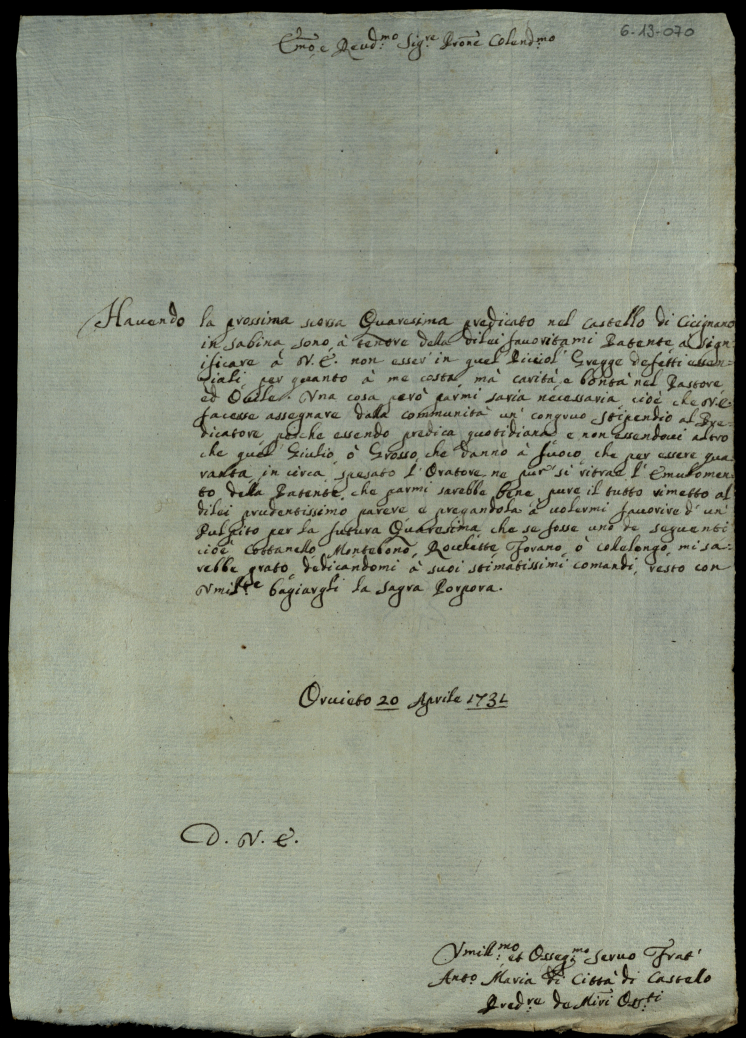 6-13-070
Emo, e Reud.mo Sig.re Prone Colend.mo
Hauendo la prossima scorsa Quaresima predicato nel Castello di Cicignano
in Sabina sono, à tenore della dilei favoritami Patente a sign=
ificare à V. E. non esser' in quel Picciol' Gregge defetti essen=
ziali, per quanto à me costa, mà carità, e bontà nel Pastore
ed Ouile. Una cosa però parmi saria necessaria, cioè che V. E.
facesse assegnare dalla communità un' congruo stipendio al Pre=
dicatore, perche essendo predica quotidiana, e non essendoui altro
che quel' Giulio, ò Grosso, che danno à fuoco, che per essere qua=
ranta, in circa, spesato l' Oratore ne pur' si ritrae l' Emulomen=
to della Patente, che parmi sarebbe bene, pure il tutto rimetto al
dilei prudentissimo parere e pregandola à volermi fauorire d' un'
Pulpito per la futura Quaresima che se fosse uno de seguenti
cioè Cottanello, Montebono, Rocchette, Torano, ò Collelongo, mi sa=
rebbe grato, dedicandomi à suoi stimatissimi comandi, resto con
Umil.te bagiargli la Sagra Porpora.
Oruieto 20 Aprile 1731
D. V. E.
Umill.mo et Osseq.mo Seruo Frat'
Anto. Maria di Città di Castelo
Pred.re de Miri Oss.ti